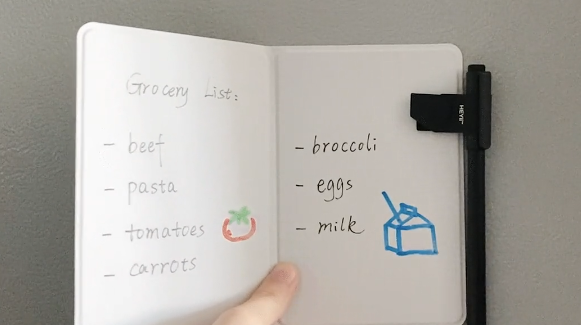 Grocery List:
- beef
- pasta
- tomatoes
- carrots
- broccoli
- eggs
- milk